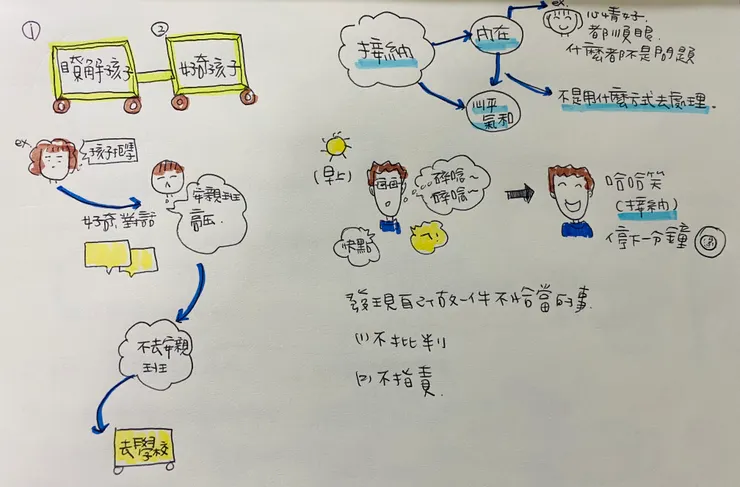 ①
瞭解孩子
②
好奇孩子
ex.
孩子拒學
好奇對話
安親班
高压
不去安親
班
去學校
接納
內在
ex.
心情好.
都順眼.
什麼都不是問題
心平
氣和
不是用什麼方式去處理.
(早上)
碎唸~
碎唸~
快點
哈哈笑
(接納)
停下一分鐘
發現自己做一件不恰當的事.
(1) 不批判
(2) 不指責.